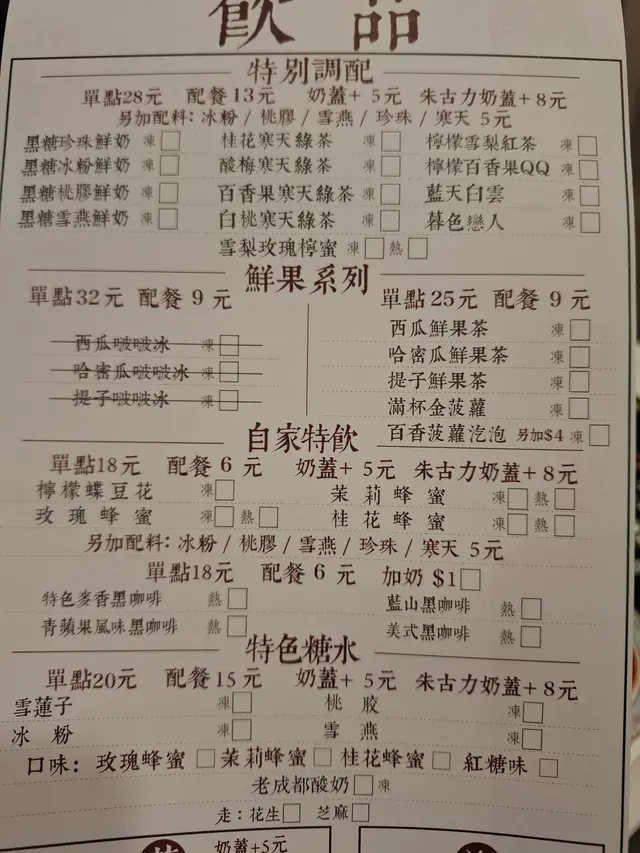 飲品
特別調配
單點28元 配餐13元 奶蓋+5元 朱古力奶蓋+8元
另加配料: 冰粉 / 桃膠 / 雪燕 / 珍珠 / 寒天 5元
黑糖珍珠鮮奶 凍□ 桂花寒天綠茶 凍□ 檸檬雪梨紅茶 凍□
黑糖冰粉鮮奶 凍□ 酸梅寒天綠茶 凍□ 檸檬百香果QQ 凍□
黑糖桃膠鮮奶 凍□ 百香果寒天綠茶 凍□ 藍天白雲 凍□
黑糖雪燕鮮奶 凍□ 白桃寒天綠茶 凍□ 暮色戀人 凍□
雪梨玫瑰檸蜜 凍□ 熱□
鮮果系列
單點32元 配餐 9 元
西瓜啵啵冰 凍□
哈密瓜啵啵冰 凍□
提子啵啵冰 凍□
單點25元 配餐 9 元
西瓜鮮果茶 凍□
哈密瓜鮮果茶 凍□
提子鮮果茶 凍□
滿杯金菠蘿 凍□
百香菠蘿汽泡 另加$4 凍□
自家特飲
單點18元 配餐 6 元 奶蓋+5元 朱古力奶蓋+8元
檸檬蝶豆花 凍□ 茉莉蜂蜜 凍□ 熱□
玫瑰蜂蜜 凍□ 熱□ 桂花蜂蜜 凍□ 熱□
另加配料: 冰粉 / 桃膠 / 雪燕 / 珍珠 / 寒天 5元
單點18元 配餐 6 元 加奶 $1□
特色麥香黑咖啡 熱□ 藍山黑咖啡 熱□
青蘋果風味黑咖啡 熱□ 美式黑咖啡 熱□
特色糖水
單點20元 配餐15元 奶蓋+5元 朱古力奶蓋+8元
雪蓮子 凍□ 桃膠 凍□
冰粉 凍□ 雪燕 凍□
口味: 玫瑰蜂蜜□ 茉莉蜂蜜□ 桂花蜂蜜□ 紅糖味□
老成都酸奶□凍
走: 花生□ 芝麻□
奶蓋+5元